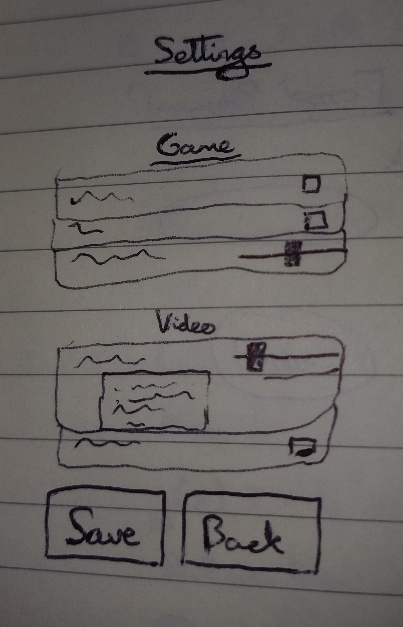 Settings
Game
Video
Save Back